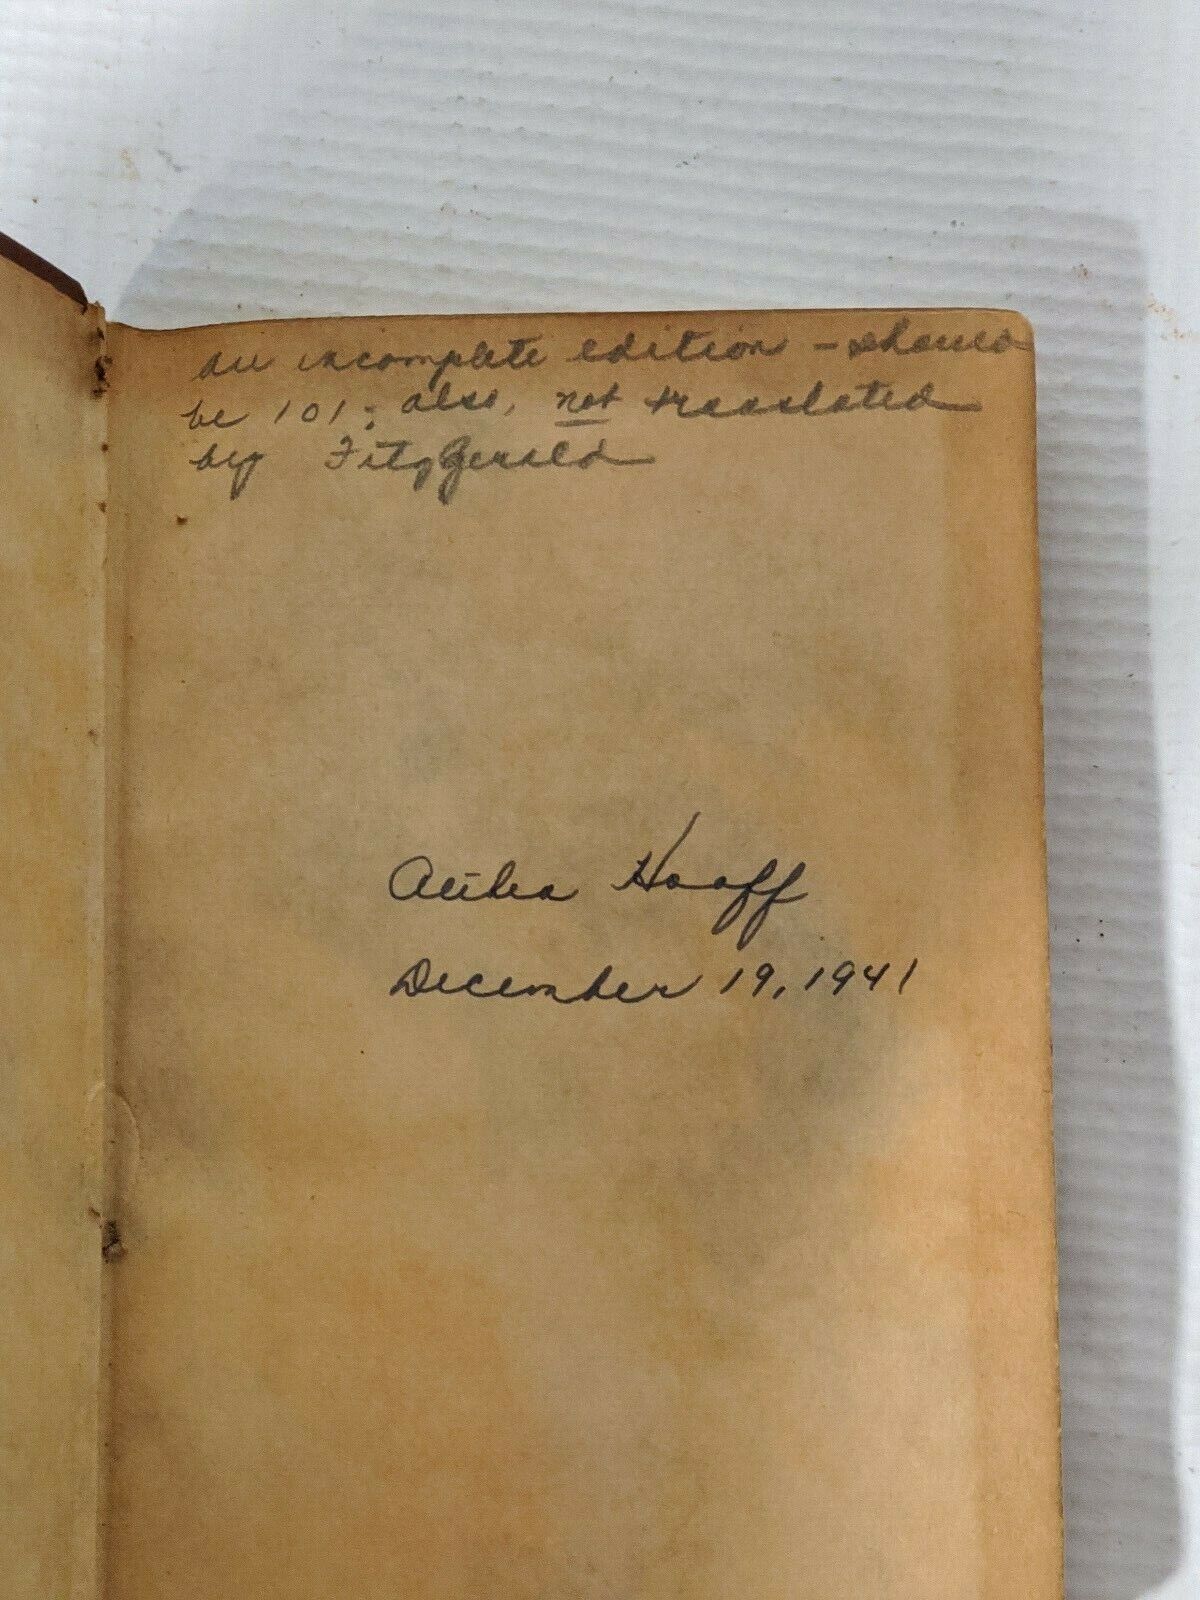 an incomplete edition - should
be 101; also, not translated
by FitzGerald
Haaff
December 19, 1941